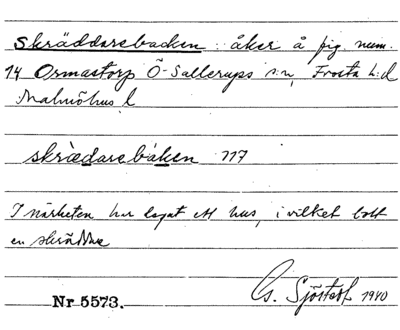 Skräddarebacken : åker å fig. num.
14 Ormastorp Ö-Sallerups s:n, Frosta h:d
Malmöhus l
skrædarebaken 117
I närheten har legat ett hus, i vilket bott
en skräddare
Nr 5573. Sjöstedt 1940